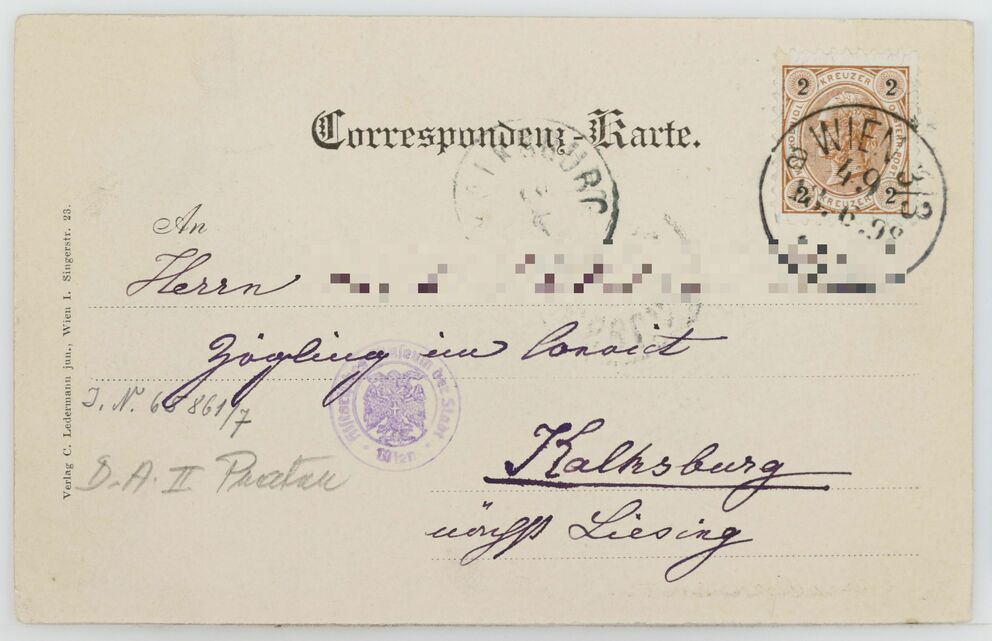 Correspondenz-Karte.
2 KREUZER 2
2 KREUZER 2
WIEN
3/3
4.9
An
Herrn
Zögling im Convict
Kalksburg
nächst Liesing
der Stadt
Wien
I. N. 68861/7
D. A. II Prater
Verlag C. Ledermann jun., Wien I. Singerstr. 23.